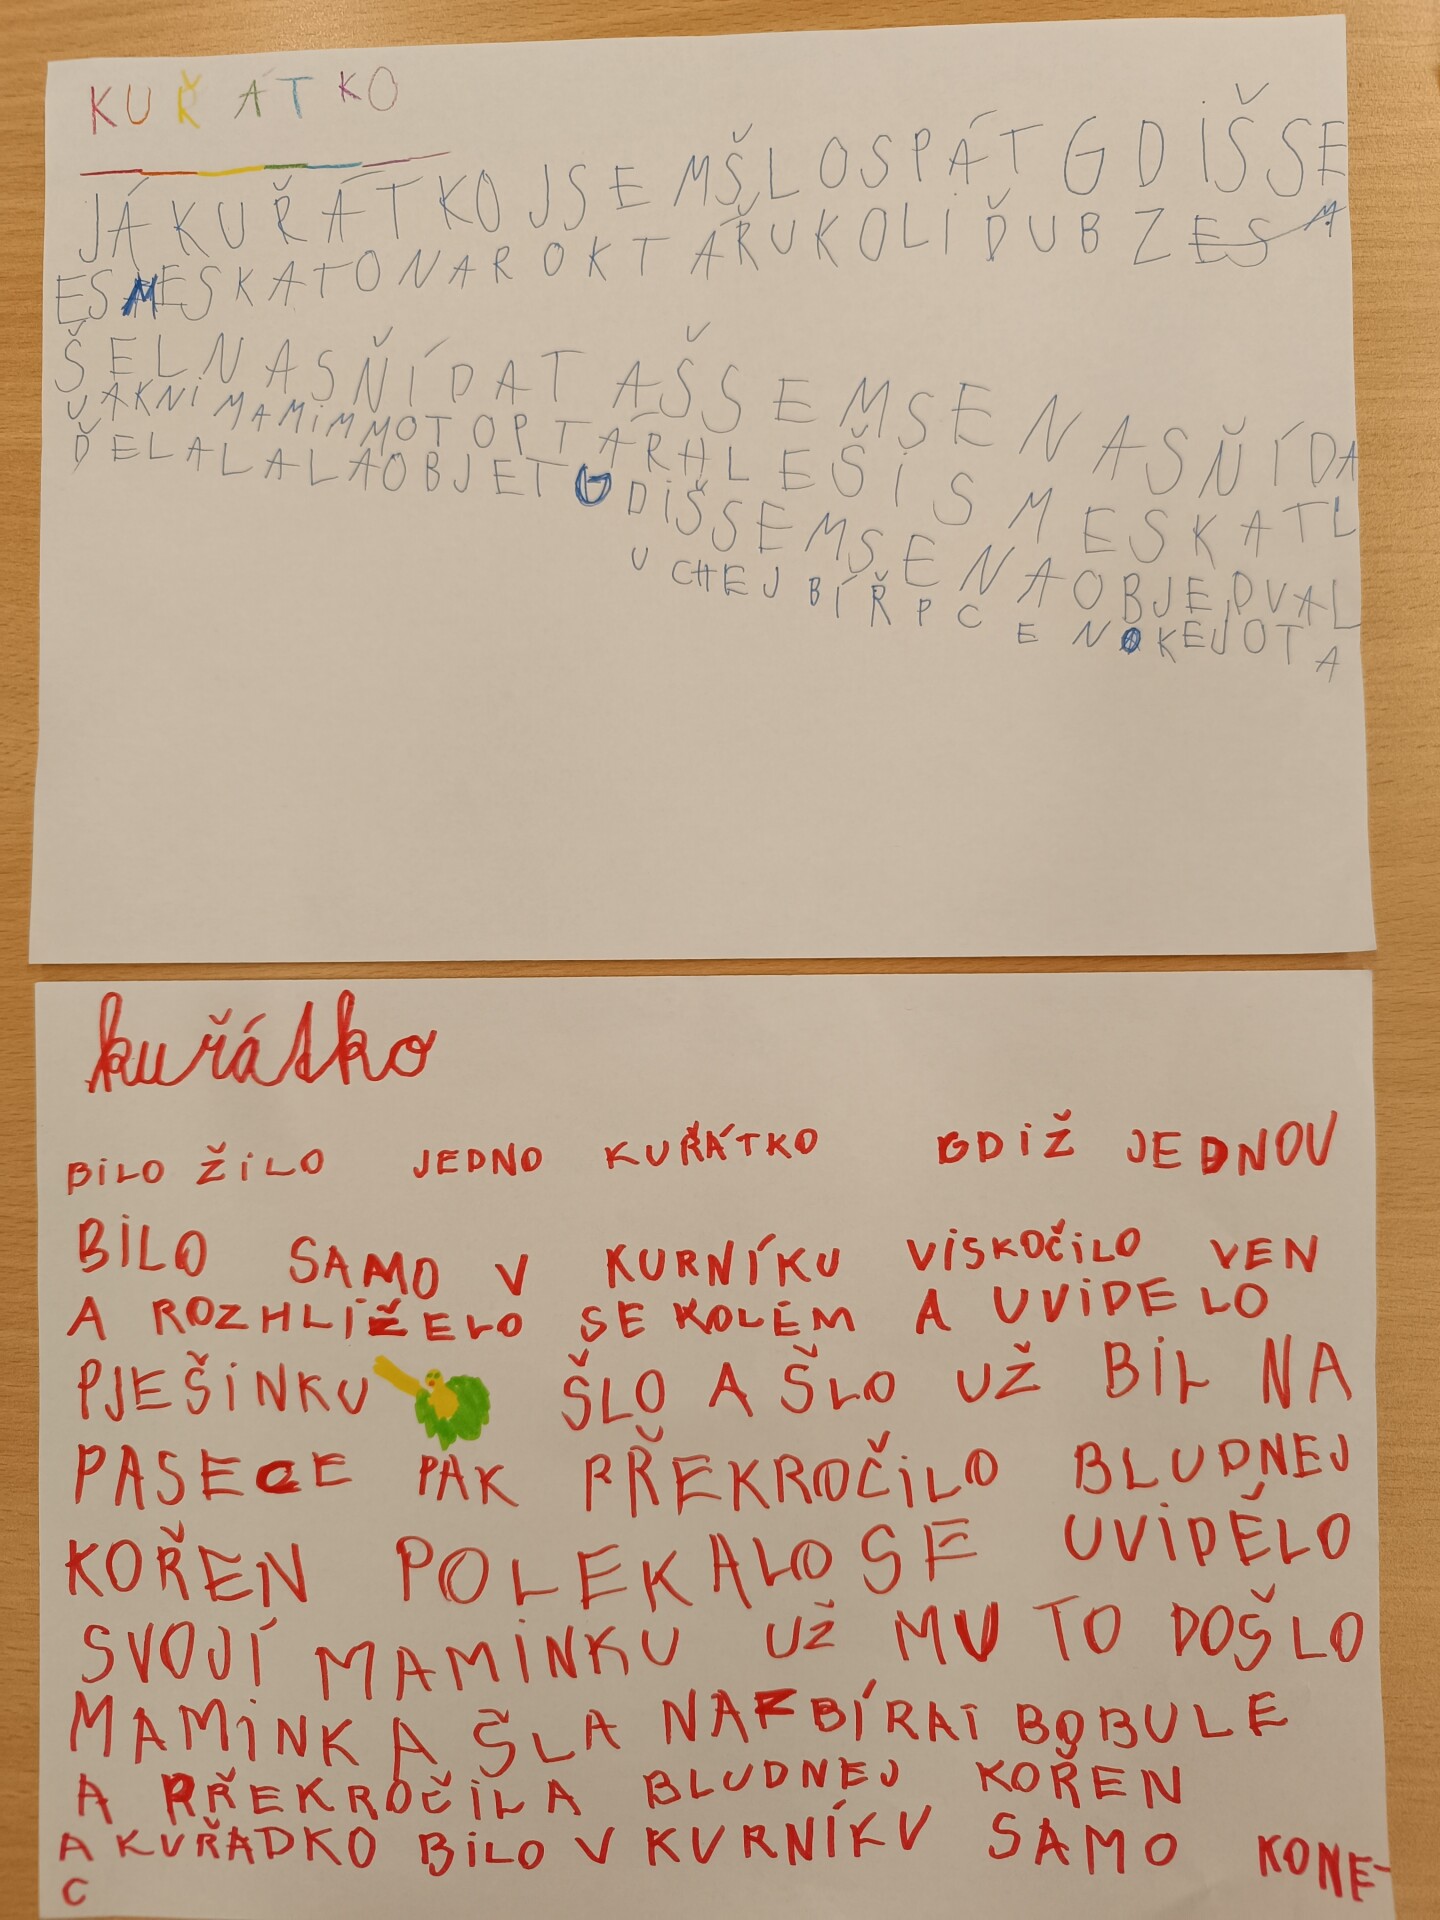 KUŘÁTKO
JÁ KUŘÁTKO JSEM ŠLO SPÁT GDIŠ SE
ESMESKATONAROKTAŘUKOLIĎUBZESM
ŠEL NASŇÍDAT AŠ SEM SE NASŇÍDA
UAKNIMAMIMMOTOPTÁRHLEŠISMESKATL
ĎELALALAOBJET GDIŠ SEM SE NAOBJEDVAL
UCHEJBÍŘPCENOKEJOTA
kuřátko
BILO ŽILO JEDNO KUŘÁTKO GDIŽ JEDNOU
BILO SAMO V KURNÍKU VISKOČILO VEN
A ROZHLÍŽELO SE KOLEM A UVIDELO
PJEŠINKU ŠLO A ŠLO UŽ BIL NA
PASECE PAK PŘEKROČILO BLUDNEJ
KOŘEN POLEKALO SE UVIDĚLO
SVOJÍ MAMINKU UŽ MU TO DOŠLO
MAMINKA ŠLA NAZBÍRAT BOBULE
A PŘEKROČILA BLUDNEJ KOŘEN
A KUŘADKO BILO V KURNÍKU SAMO KONE-
C